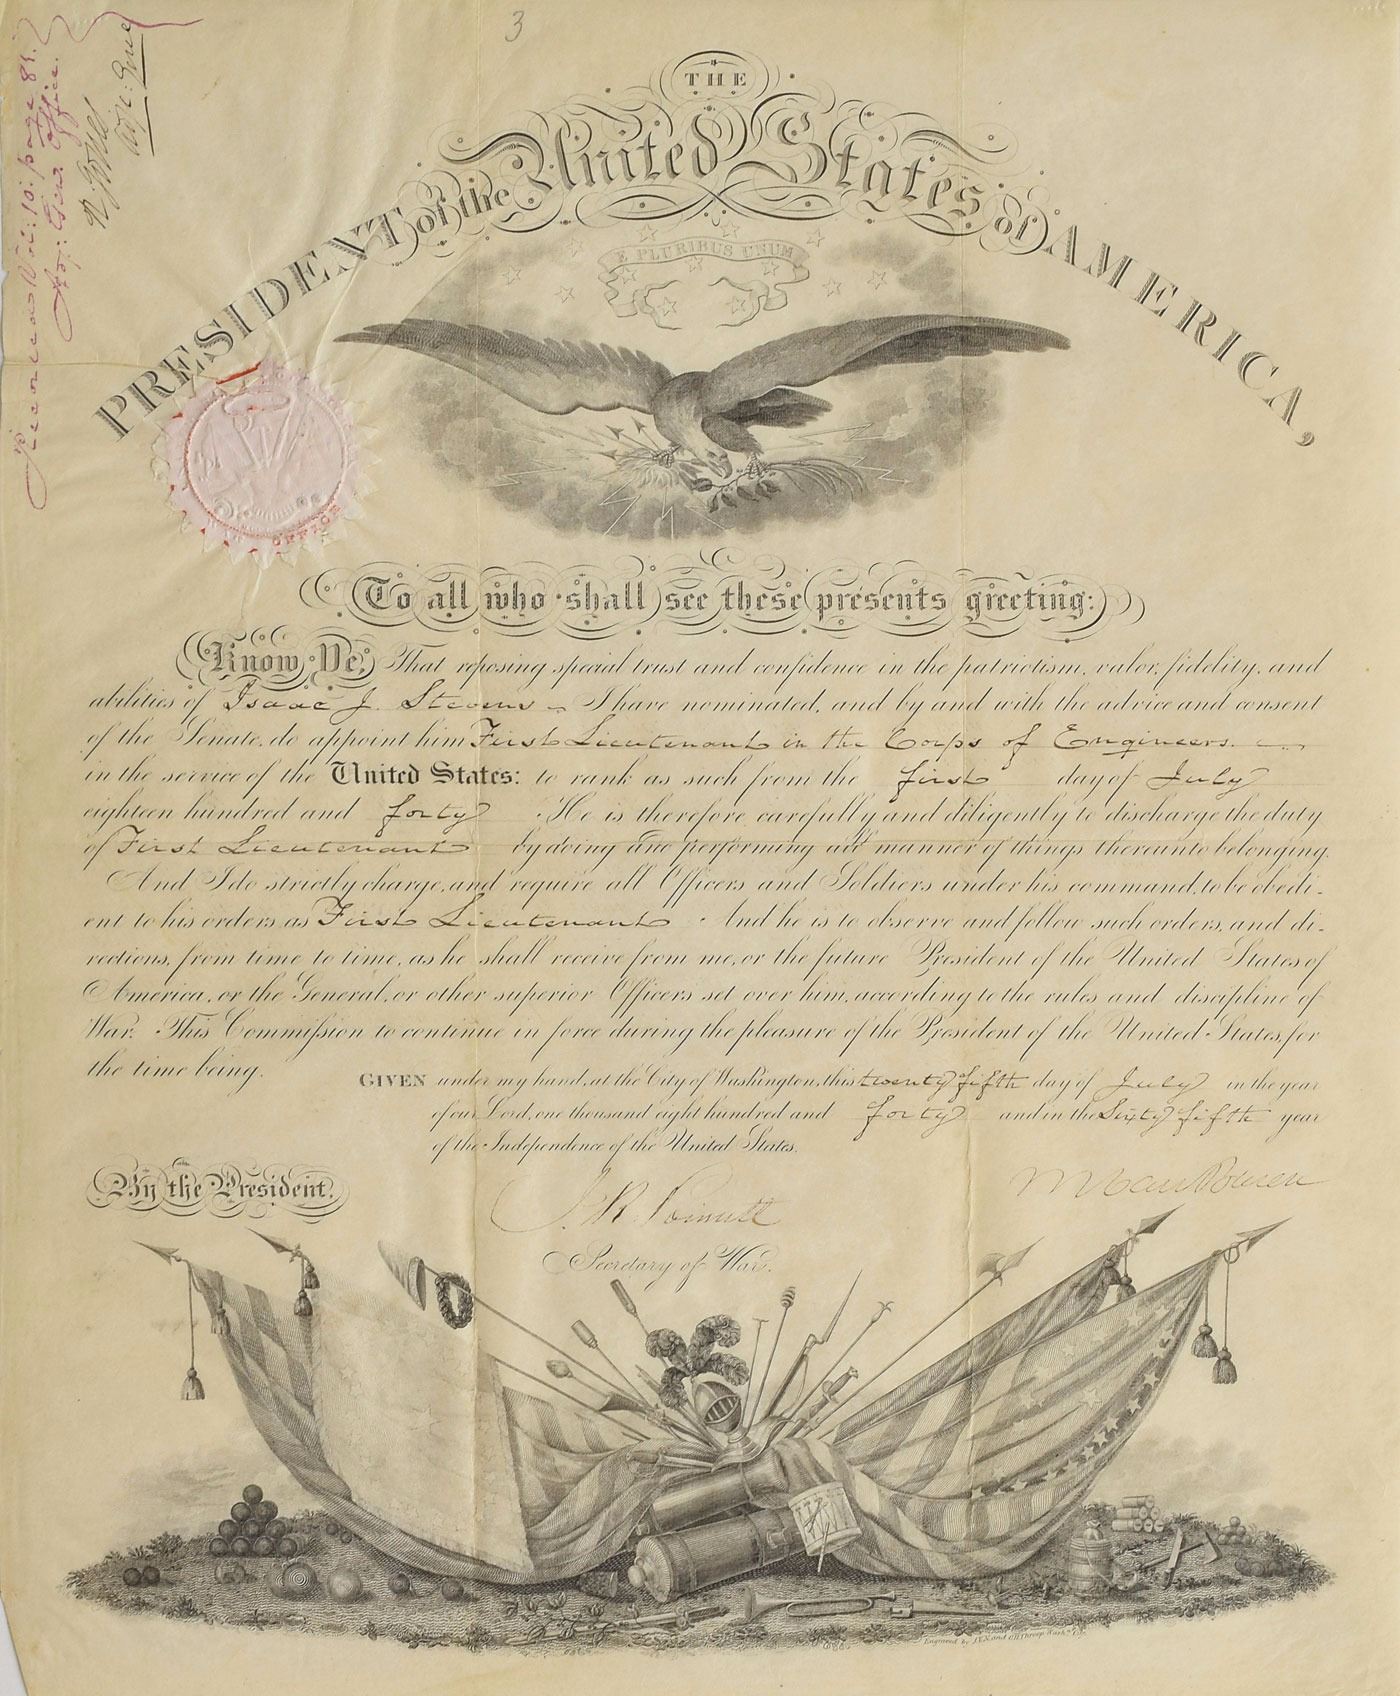 3
Recorded Vol: 10. page 81.
Adj: Genl Office.
R. Jones
Adjt: Genl
THE
PRESIDENT of the United States of AMERICA,
E PLURIBUS UNUM
OFFICE
To all who shall see these presents greeting:
Know Ye, That reposing special trust and confidence in the patriotism, valor, fidelity, and
abilities of Isaac J. Stevens I have nominated, and by and with the advice and consent
of the Senate, do appoint him First Lieutenant in the Corps of Engineers.
in the service of the United States: to rank as such from the first day of July
eighteen hundred and forty. He is therefore carefully and diligently to discharge the duty
of First Lieutenant by doing and performing all manner of things thereunto belonging.
And I do strictly charge, and require all Officers and Soldiers under his command, to be obedi-
ent to his orders as First Lieutenant. And he is to observe and follow such orders, and di-
rections, from time to time, as he shall receive from me, or the future President of the United States of
America, or the General, or other superior Officers set over him, according to the rules and discipline of
War. This Commission to continue in force during the pleasure of the President of the United States, for
the time being.
GIVEN under my hand, at the City of Washington, this twenty fifth day of July in the year
of our Lord, one thousand eight hundred and forty and in the Sixty fifth year
of the Independence of the United States.
By the President.
M Van Buren
J. R. Poinsett
Secretary of War.
Engraved by J.V.N. and O.H. Throop, Washn. Cy.